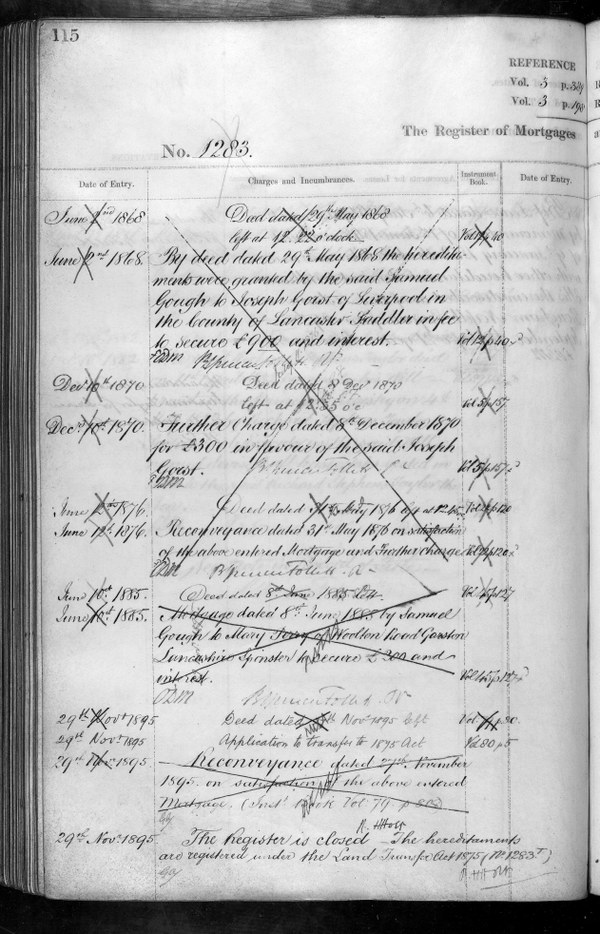 115
REFERENCE
Vol. 5 p. 389
Vol. 3 p. 190
The Register of Mortgages
No. 1283.
Date of Entry.
Charges and Incumbrances.
Instrument Book.
Date of Entry.
June 2nd 1868
Deed dated 29th May 1868
left at 12. 22 o'clock
p 40
June 2nd 1868.
By deed dated 29th May 1868 the heredita-
ments were granted by the said Samuel
Gough to Joseph Gorst of Liverpool in
the County of Lancaster Saddler in fee
to secure £900 and interest.
p 40
Decr 10th 1870
Deed dated 8 Decr 1870
left at
Vol 5 p 157
Decr 10th 1870.
Further Charge dated 8th December 1870
for £300 in favour of the said Joseph
Gorst.
Vol 5 p 157
BSpencer Follett
June 1876
Deed dated 31st May 1876 left at 12.45
p 120
June 12th 1876.
Reconveyance dated 31st May 1876 on satisfaction
of the above entered Mortgage and Further charge
p 120
BSpencer Follett
June 10th 1885.
Deed dated 8th June 1885
p 127
June 10th 1885.
Mortgage dated 8th June 1885 by Samuel
Gough to Mary Terry of Woolton Road Garston
Lancashire Spinster to secure £300 and
interest.
p 127
BSpencer Follett
29th Novr 1895
Deed dated Novr 1895 left
Vol. p 80.
29th Novr 1895
Application to transfer to 1875 Act
Vol 80 p 5
29th Novr 1895.
Reconveyance dated 27th November
1895. on satisfaction of the above entered
Mortgage. (Inst. Book Vol 79. p 80)
29th Novr 1895
The Register is closed The hereditaments
are registered under the Land Transfer Act 1875 (No 1283T)